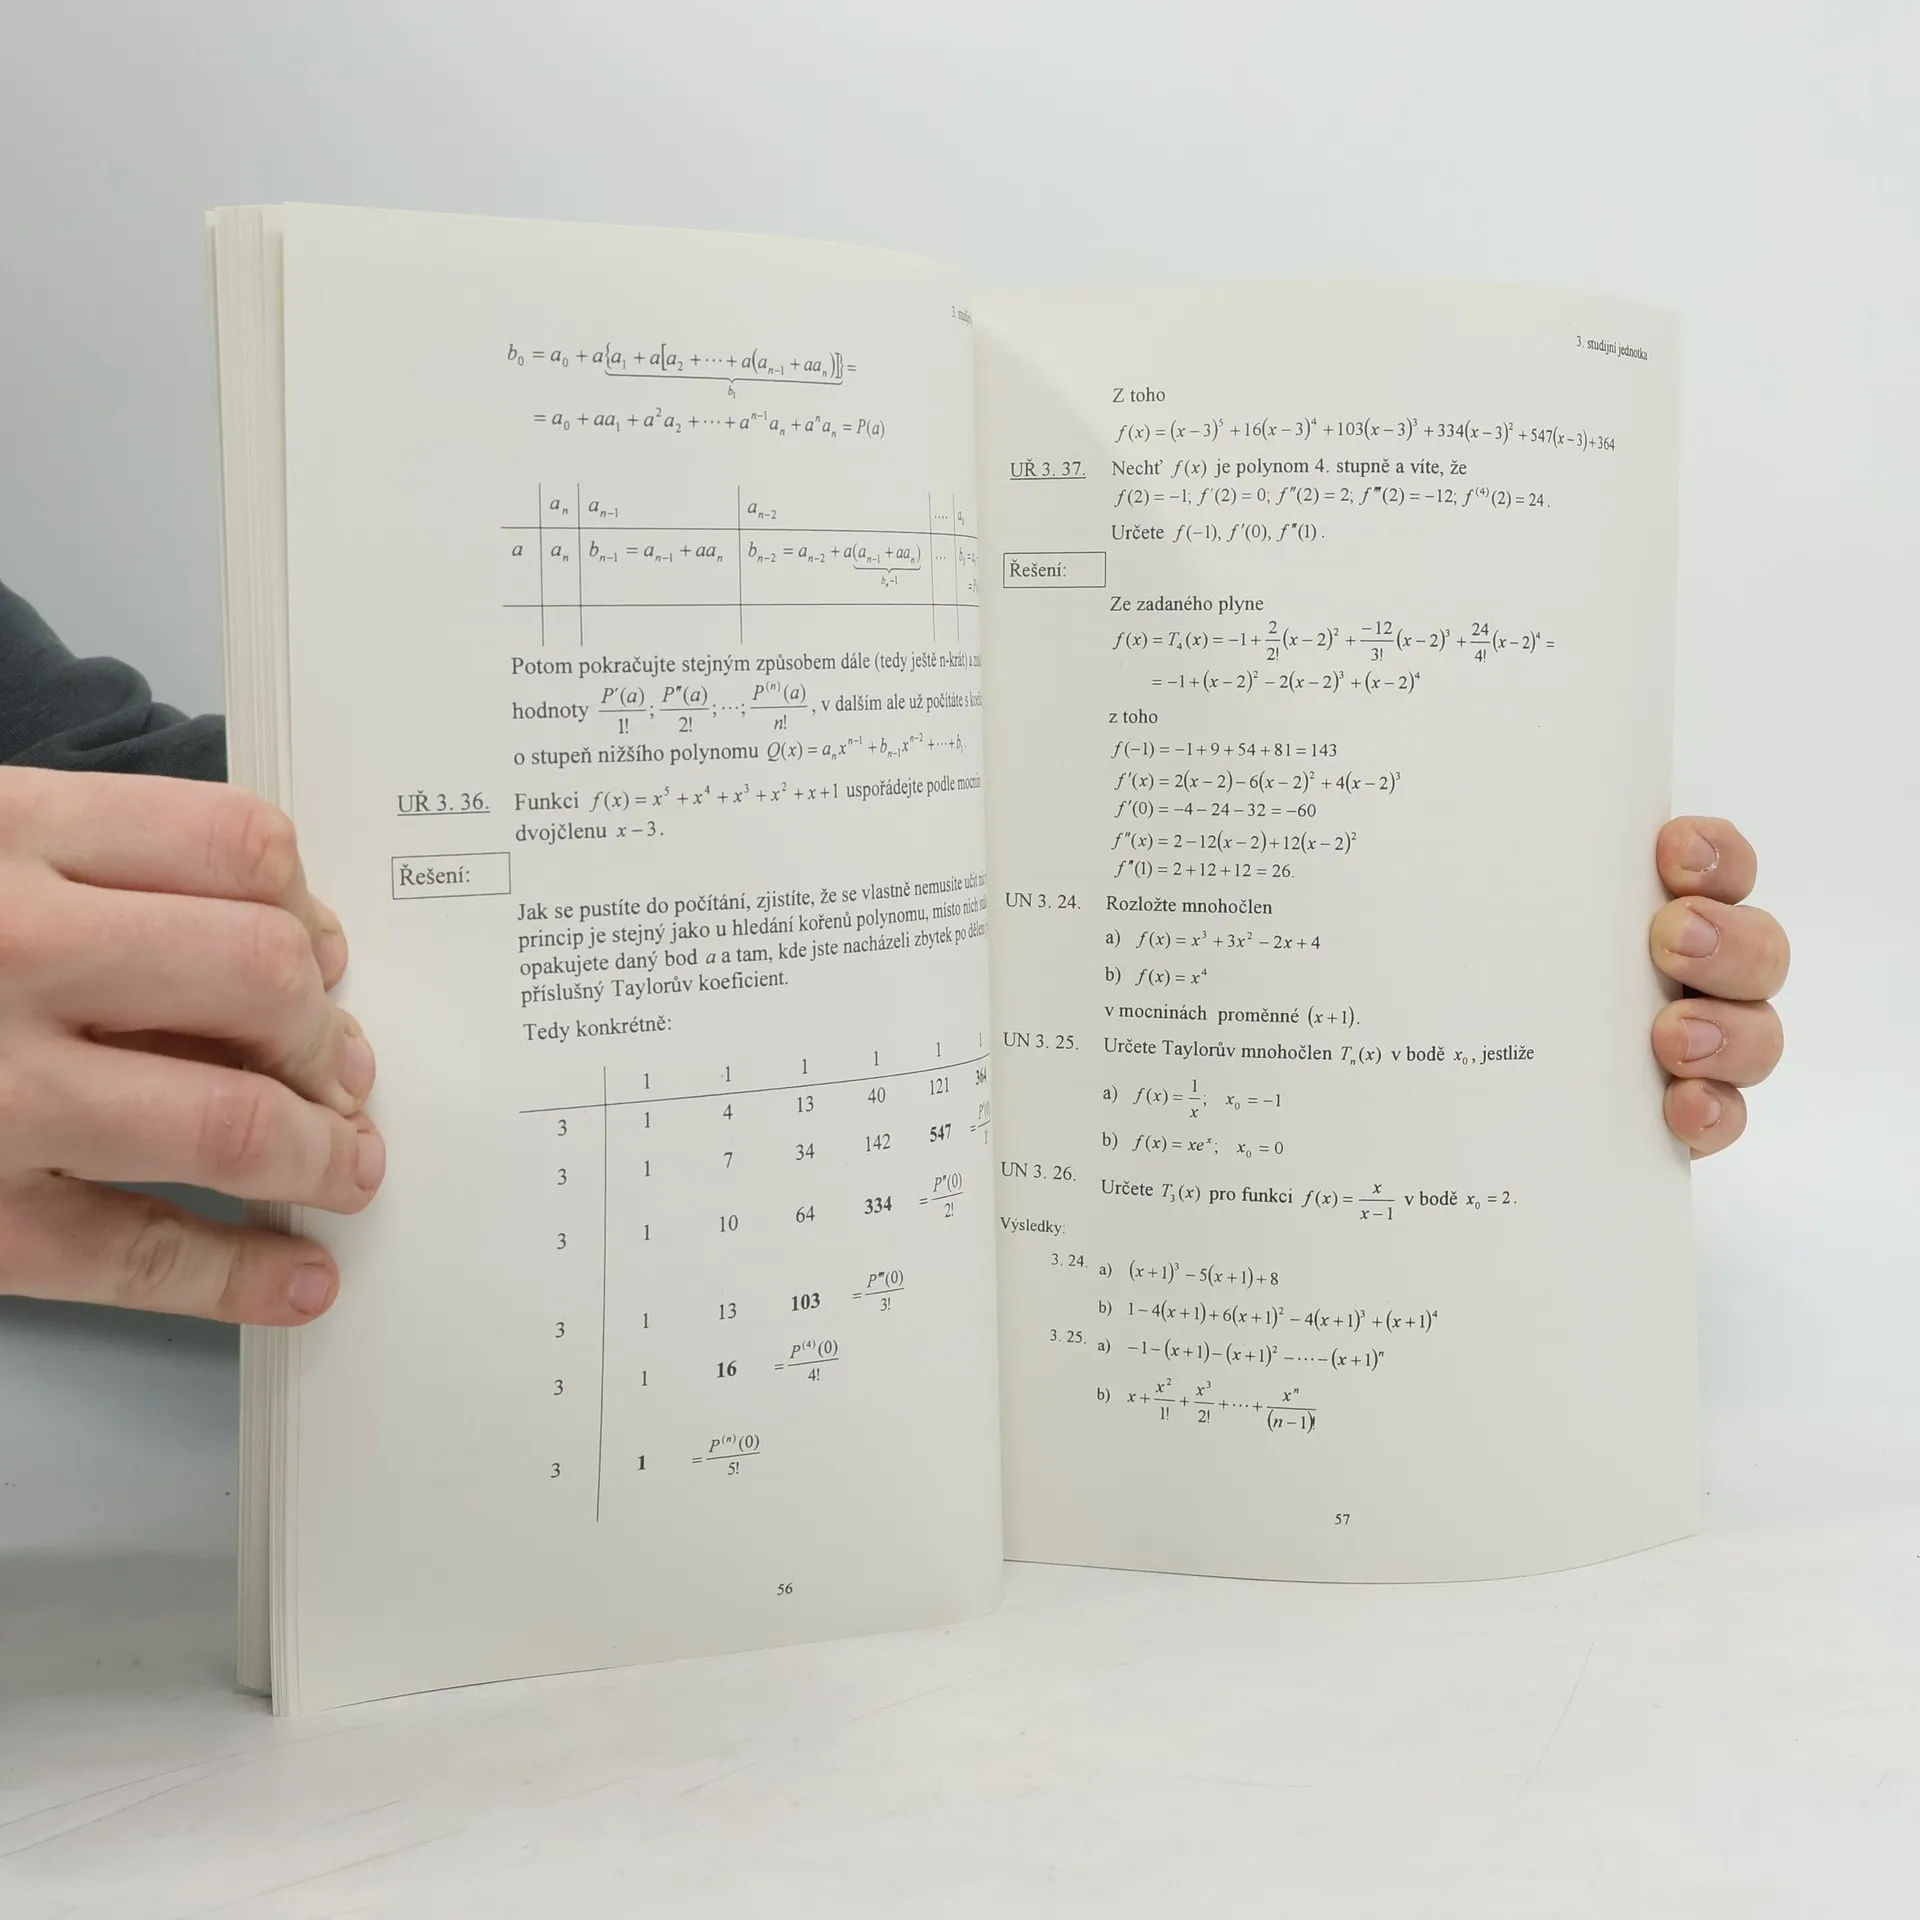 b₀ = a₀ + a{a₁ + a[a₂ + ⋯ + a(aₙ₋₁ + aaₙ)]} =
b₁
= a₀ + aa₁ + a²a₂ + ⋯ + aⁿ⁻¹aₙ + aⁿaₙ = P(a)
aₙ aₙ₋₁ aₙ₋₂ ....
a aₙ bₙ₋₁ = aₙ₋₁ + aaₙ bₙ₋₂ = aₙ₋₂ + a(aₙ₋₁ + aaₙ) ...
bₙ₋₁
Potom pokračujte stejným způsobem dále (tedy ještě n-krát) a
hodnoty P′(a)/1!; P″(a)/2!; ⋯; P⁽ⁿ⁾(a)/n!, v dalším ale už počítáte s
o stupeň nižšího polynomu Q(x) = aₙxⁿ⁻¹ + bₙ₋₁xⁿ⁻² + ⋯ + b₁.
UŘ 3. 36. Funkci f(x) = x⁵ + x⁴ + x³ + x² + x + 1 uspořádejte podle
dvojčlenu x − 3.
Řešení:
Jak se pustíte do počítání, zjistíte, že se vlastně nemusíte učit
princip je stejný jako u hledání kořenů polynomu, místo nich
opakujete daný bod a a tam, kde jste nacházeli zbytek po
příslušný Taylorův koeficient.
Tedy konkrétně:
1 1 1 1 1 1
3 1 4 13 40 121 364
3 1 7 34 142 547 =
3 1 10 64 334 = P″(0)/2!
3 1 13 103 = P‴(0)/3!
3 1 16 = P⁽⁴⁾(0)/4!
3 1 = P⁽ⁿ⁾(0)/5!
56
3. studijní jednotka
Z toho
f(x) = (x − 3)⁵ + 16(x − 3)⁴ + 103(x − 3)³ + 334(x − 3)² + 547(x − 3) + 364
UŘ 3. 37. Nechť f(x) je polynom 4. stupně a víte, že
f(2) = −1; f′(2) = 0; f″(2) = 2; f‴(2) = −12; f⁽⁴⁾(2) = 24.
Určete f(−1), f′(0), f″(1).
Řešení:
Ze zadaného plyne
f(x) = T₄(x) = −1 + 2/2!(x − 2)² + −12/3!(x − 2)³ + 24/4!(x − 2)⁴ =
= −1 + (x − 2)² − 2(x − 2)³ + (x − 2)⁴
z toho
f(−1) = −1 + 9 + 54 + 81 = 143
f′(x) = 2(x − 2) − 6(x − 2)² + 4(x − 2)³
f′(0) = −4 − 24 − 32 = −60
f″(x) = 2 − 12(x − 2) + 12(x − 2)²
f″(1) = 2 + 12 + 12 = 26.
UN 3. 24. Rozložte mnohočlen
a) f(x) = x³ + 3x² − 2x + 4
b) f(x) = x⁴
v mocninách proměnné (x + 1).
UN 3. 25. Určete Taylorův mnohočlen Tₙ(x) v bodě x₀, jestliže
a) f(x) = 1/x; x₀ = −1
b) f(x) = xeˣ; x₀ = 0
UN 3. 26. Určete T₃(x) pro funkci f(x) = x/(x − 1) v bodě x₀ = 2.
Výsledky:
3. 24. a) (x + 1)³ − 5(x + 1) + 8
b) 1 − 4(x + 1) + 6(x + 1)² − 4(x + 1)³ + (x + 1)⁴
3. 25. a) −1 − (x + 1) − (x + 1)² − ⋯ − (x + 1)ⁿ
b) x + x²/1! + x³/2! + ⋯ + xⁿ/(n − 1)!
57